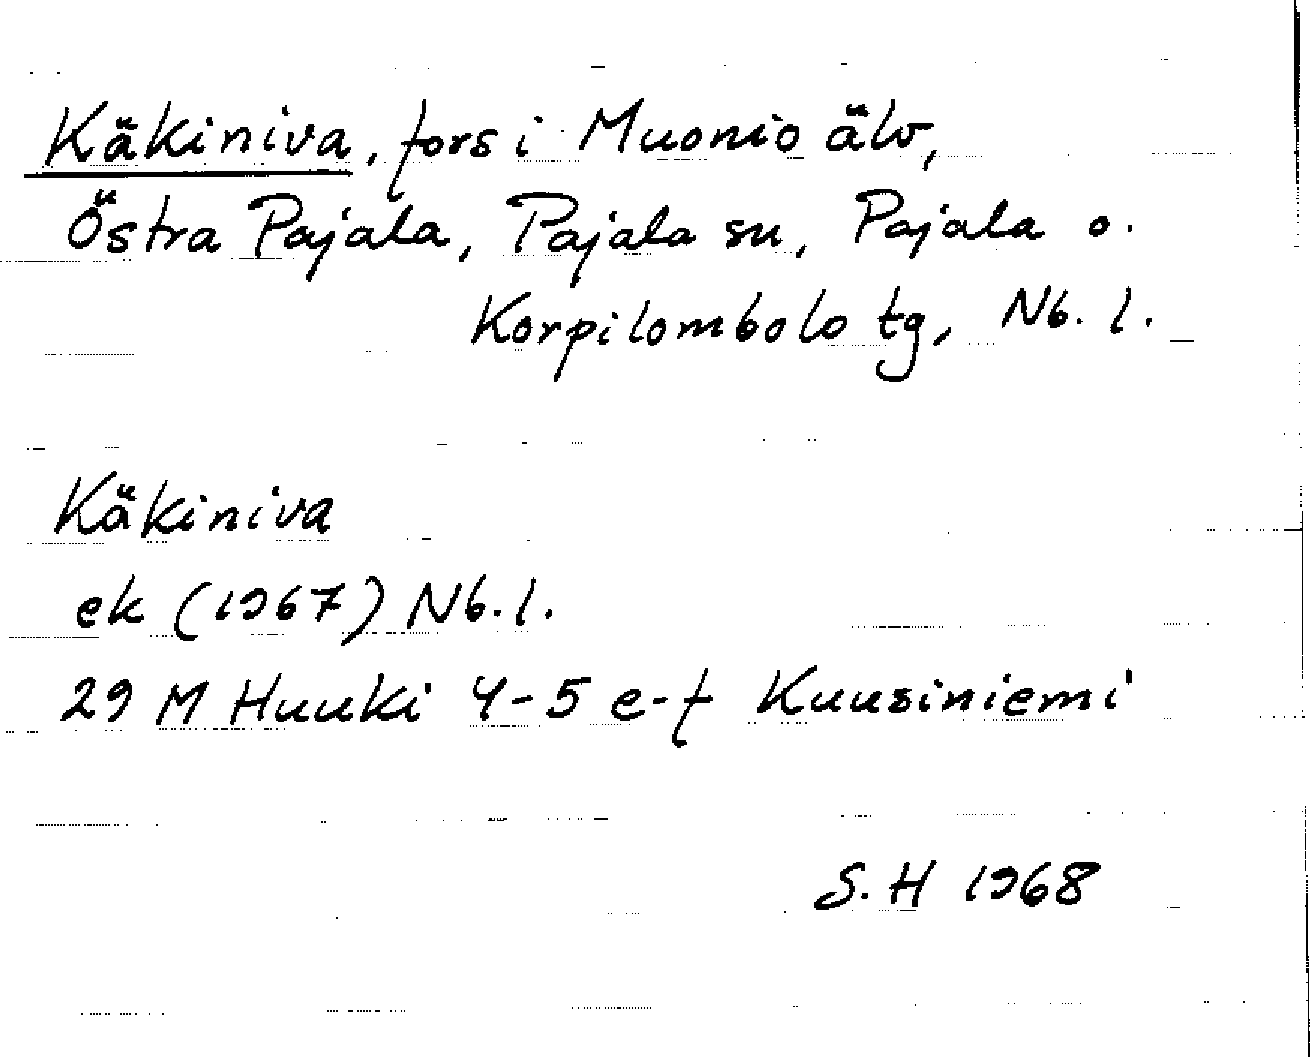 Käkiniva, fors i Muonio älv,
Östra Pajala, Pajala sn, Pajala o.
Korpilombolo tg, Nb. l.
Käkiniva
ek (1967) Nb. l.
29 M Huuki 4-5 e-f Kuusiniemi
S. H 1968